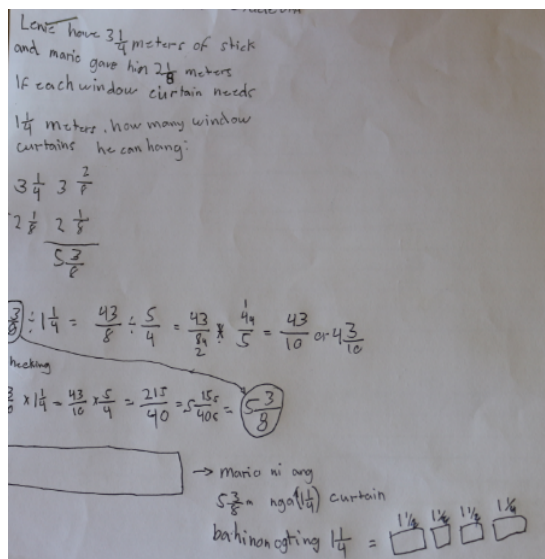 Lenie have 3 1/4 meters of stick
and mario gave him 2 1/8 meters
If each window curtain needs
1 1/4 meters, how many window
curtains he can hang:
3 1/4 3 2/8
2 1/8 2 1/8
5 3/8
3/8 ÷ 1 1/4 = 43/8 ÷ 5/4 = 43/8 × 4/5 = 43/10 or 4 3/10
hecking
× 1 1/4 = 43/10 × 5/4 = 215/40 = 5 15/40 = 5 3/8
→ mario ni ang
5 3/8 m nga (1 1/4) curtain
1 1/4 = 1 1/4 1 1/4 1 1/4 1 1/4